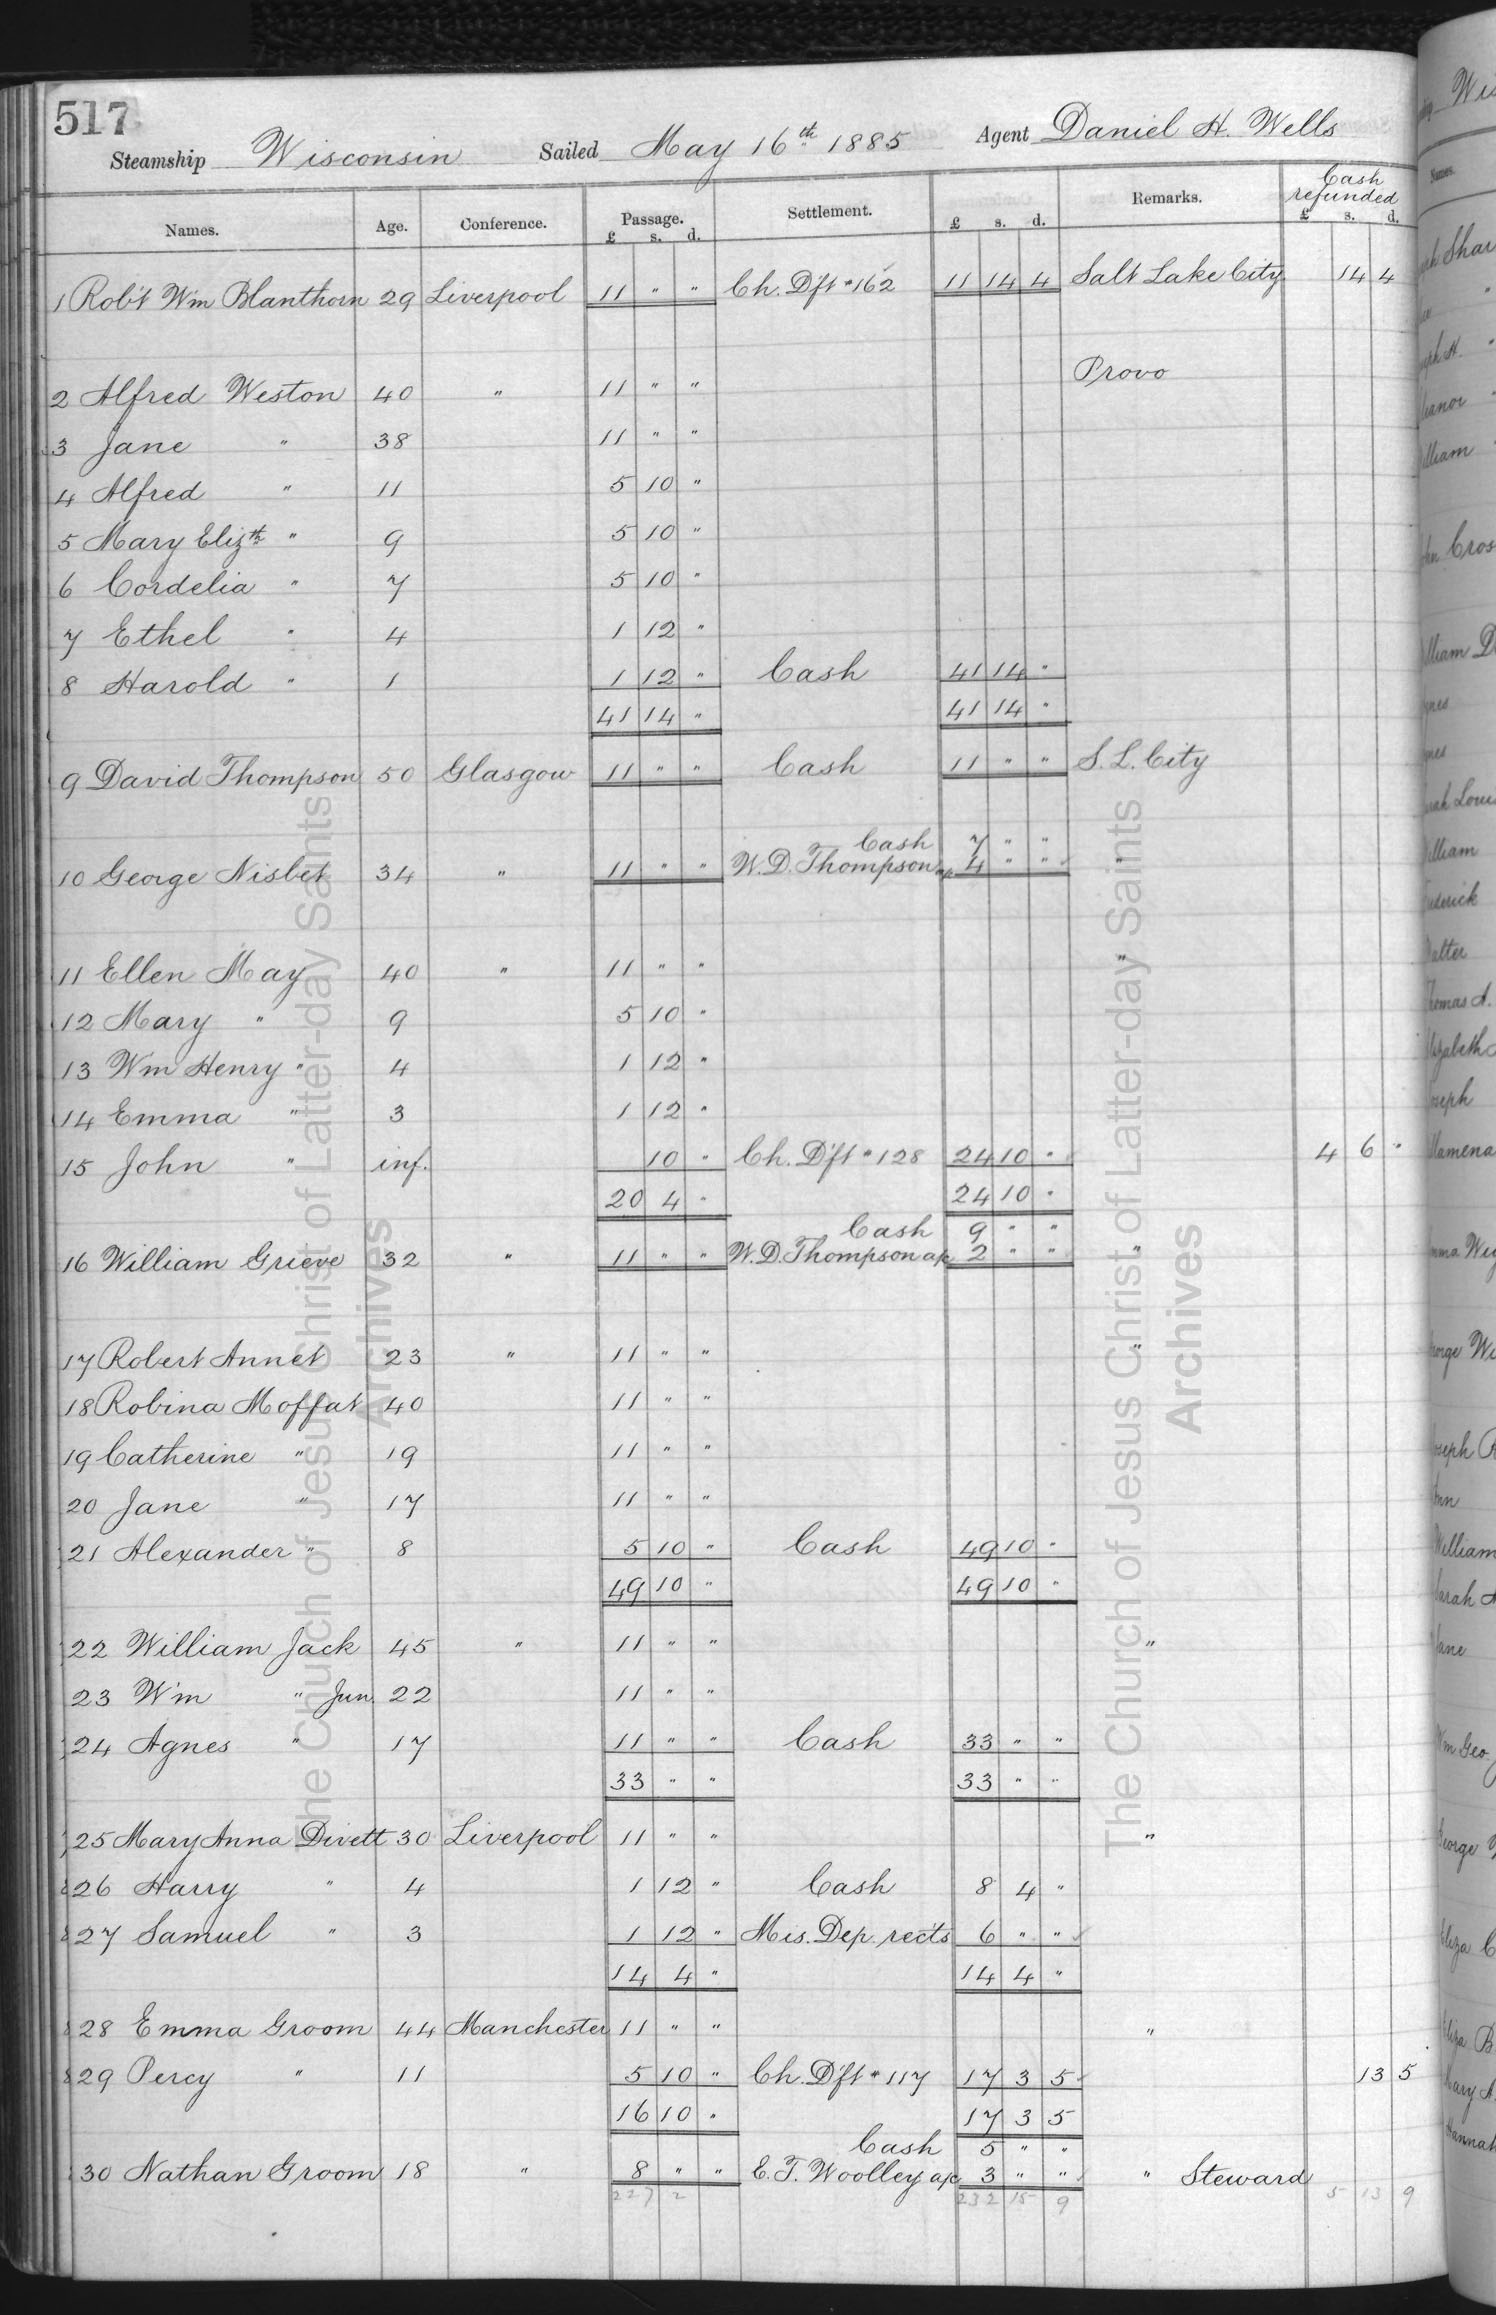 517
Steamship Wisconsin Sailed May 16th 1885 Agent Daniel H. Wells
Names. Age. Conference. Passage. £ s. d. Settlement. £ s. d. Remarks. Cash refunded £ s. d.
1 Rob't Wm Blanthorn 29 Liverpool 11 " " Ch. Dft #162 11 14 4 Salt Lake City 14 4
2 Alfred Weston 40 " 11 " " Provo
3 Jane " 38 11 " "
4 Alfred " 11 5 10 "
5 Mary Elizth " 9 5 10 "
6 Cordelia " 7 5 10 "
7 Ethel " 4 1 12 "
8 Harold " 1 1 12 " Cash 41 14 "
41 14 " 41 14 "
9 David Thompson 50 Glasgow 11 " " Cash 11 " " S. L. City
Cash 7 " "
10 George Nisbet 34 " 11 " " W. D. Thompson ac 4 " " "
11 Ellen May 40 " 11 " " "
12 Mary " 9 5 10 "
13 Wm Henry " 4 1 12 "
14 Emma " 3 1 12 "
15 John " inf. 10 " Ch. Dft #128 24 10 " 4 6 "
20 4 " 24 10 "
Cash 9 " "
16 William Grieve 32 " 11 " " W. D. Thompson ac 2 " " "
17 Robert Annet 23 " 11 " " "
18 Robina Moffat 40 11 " "
19 Catherine " 19 11 " "
20 Jane " 17 11 " "
21 Alexander " 8 5 10 " Cash 49 10 "
49 10 " 49 10 "
22 William Jack 45 " 11 " " "
23 Wm " Jun 22 11 " "
24 Agnes " 17 11 " " Cash 33 " "
33 " " 33 " "
25 Mary Anna Divett 30 Liverpool 11 " " "
26 Harry " 4 1 12 " Cash 8 4 "
27 Samuel " 3 1 12 " Mis. Dep. rects 6 " "
14 4 " 14 4 "
28 Emma Groom 44 Manchester 11 " " "
29 Percy " 11 5 10 " Ch. Dft #117 17 3 5 13 5
16 10 " 17 3 5
Cash 5 " "
30 Nathan Groom 18 " 8 " " E. T. Woolley ac 3 " " " Steward
227 2 232 15 9 5 13 9
The Church of Jesus Christ of Latter-day Saints
Archives
The Church of Jesus Christ of Latter-day Saints
Archives